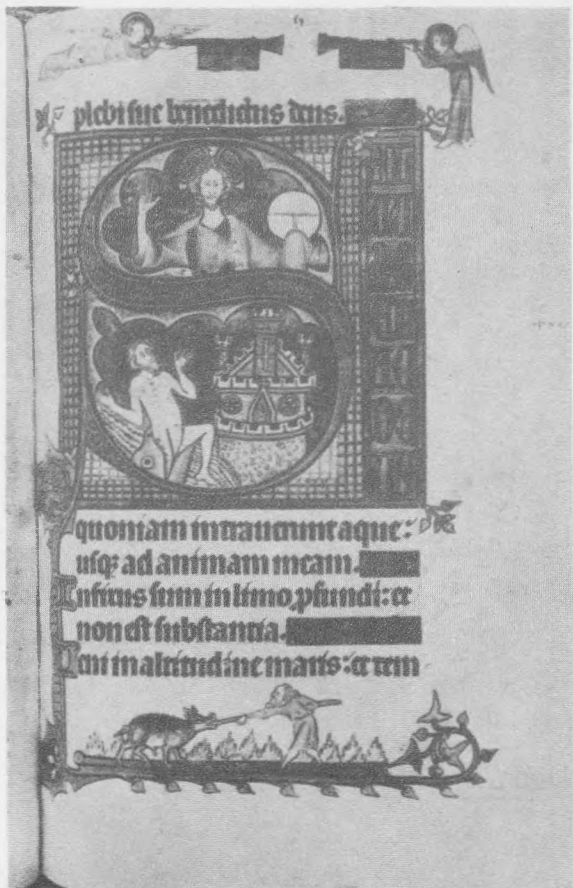 plebi sue benedictus deus.
S
quoniam intraverunt aque:
usq; ad animam meam.
Infixus sum in limo, pfundi: et
non est substantia.
Veni in altitudine maris: et tem